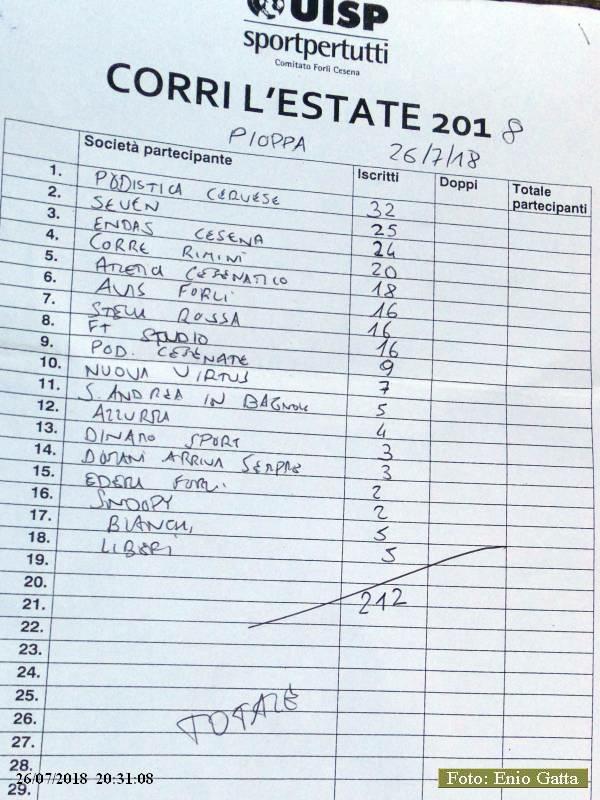 UISP
sportpertutti
Comitato Forlì Cesena
CORRI L'ESTATE 2018
PIOPPA 26/7/18
Società partecipante Iscritti Doppi Totale partecipanti
1. PODISTICA CERVESE 32
2. SEVEN 25
3. ENDAS CESENA 24
4. CORRE RIMINI 20
5. ATLETICA CESENATICO 18
6. AVIS FORLI 16
7. STELLA ROSSA 16
8. FT STUDIO 16
9. POD. CESENATE 9
10. NUOVA VIRTUS 7
11. S. ANDREA IN BAGNOLO 5
12. AZZURRA 4
13. DINAMO SPORT 3
14. DOMANI ARRIVA SEMPRE 3
15. EDERA FORLI 2
16. SNOOPY 2
17. BIANCHI 5
18. LIBERI 5
19.
20.
21. 212
22.
23.
24.
25.
26. TOTALE
27.
28.
29.
26/07/2018 20:31:08
Foto: Enio Gatta